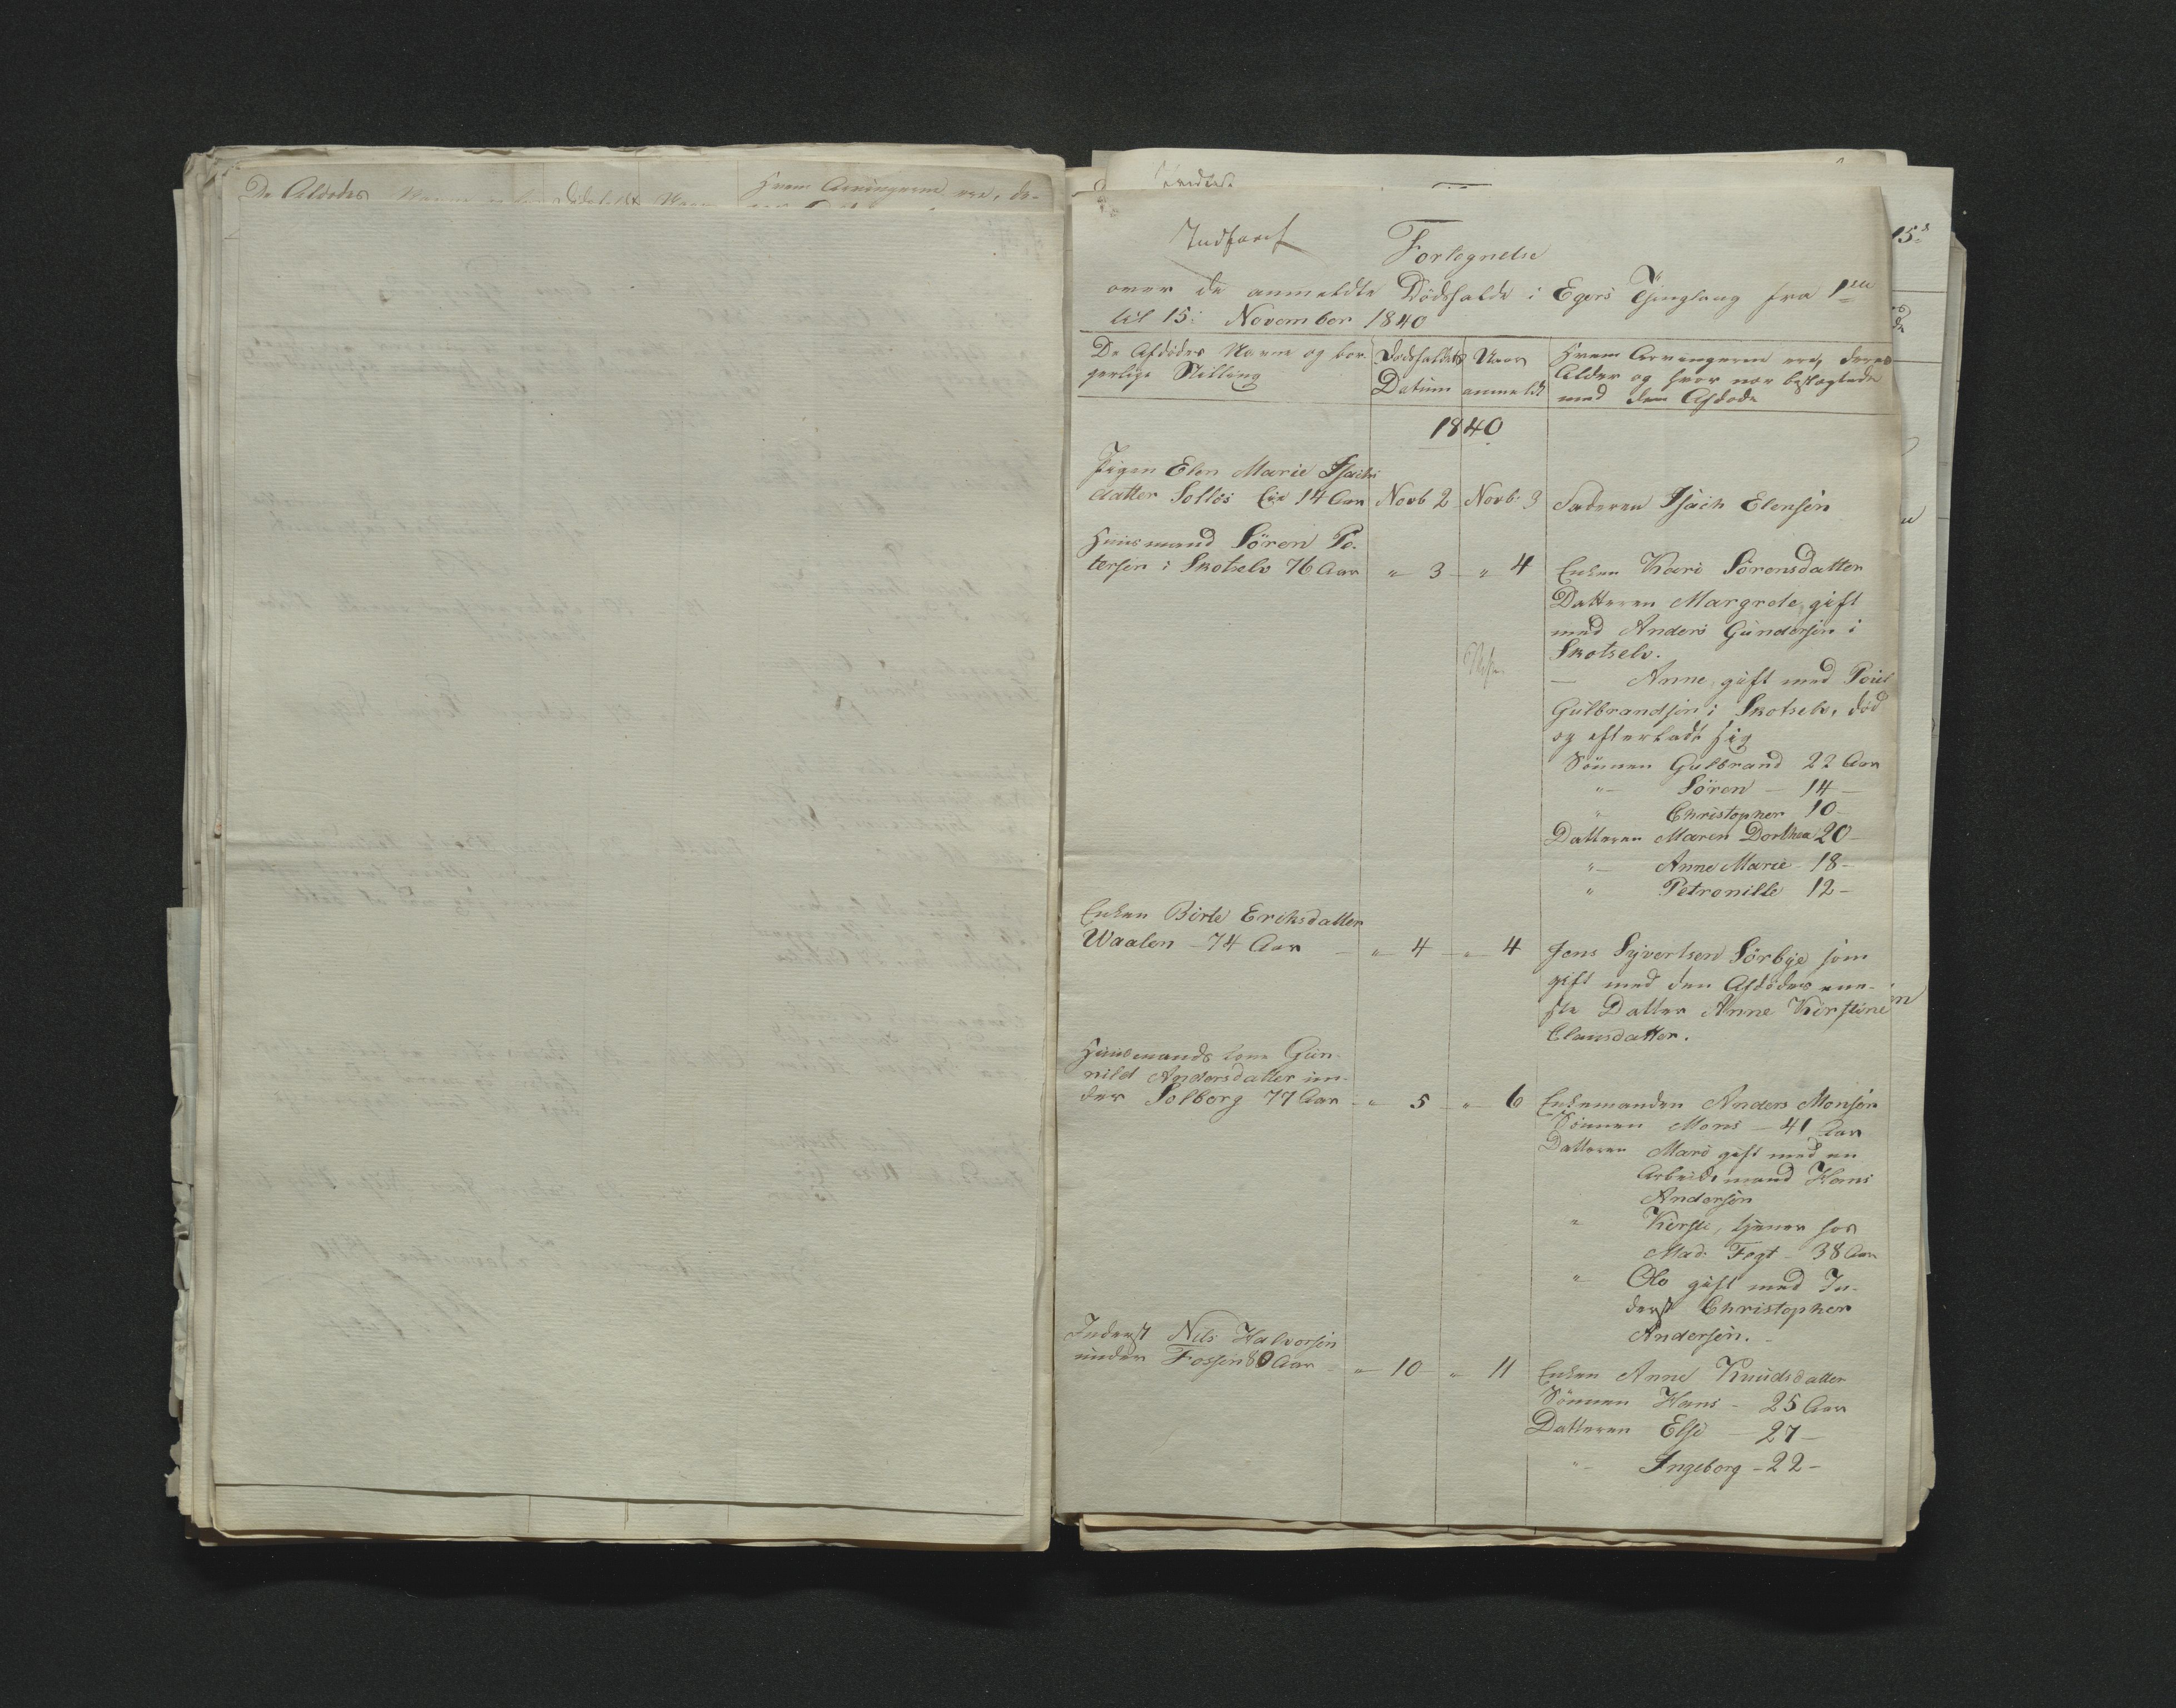 De Afdødes Navne
Hvem Arvingerne ere, de-
Indført
Fortegnelse
over de anmeldte Dödsfalde i Egers Thinglaug fra 1ste
til 15: November 1840
De Afdödes Navne og bor-
gerlige Stilling
Dødsfaldets
Datum
Naar
anmeldt
Hvem Arvingerne ere, deres
Alder og hvor nær beslægtede
med den Afdøde
1840
Pigen Elen Marie Isachs
datter Sollös 14 Aar
Novb 2
Novb: 3
Faderen Isach Elensen
Huusmand Sören Pe-
tersen i Skotselv 76 Aar
" 3
" 4
Enken Kari Sörensdatter
Datteren Margrete, gift
med Anders Gundersen i
Skotselv.
— Anne, gift med Poul
Gulbrandsen i Skotselv, død
og efterladt sig
Sönnen Gulbrand 22 Aar
" Sören — 14 —
" Christopher 10
Datteren Maren Dorthea 20 —
" Anne Marie — 18 —
" Petronille 12 —
Enken Birte Eriksdatter
Waalen — 74 Aar
" 4
" 4
Jens Syvertsen Sörbye som
gift med den Afdødes ene-
ste Datter Anne Kirstine
Clausdatter.
Huusmands Kone Gun-
nild Andersdatter un-
der Solborg 77 Aar
" 5
" 6
Enkemanden Anders Monsen
Sönnen Mons — 41 Aar
Datteren Mari gift med en
Arbeidsmand Hans
Andersen
" Kirsti, tjener hos
Mad: Fogt — 38 Aar
" Olo gift med In-
derst Christopher
Andersen.
Inderst Nils Halvorsen
under Fossen 80 Aar
" 10
" 11
Enken Anne Knudsdatter
Sönnen Hans — 25 Aar
Datteren Else — 27 —
" Ingeborg — 22 —